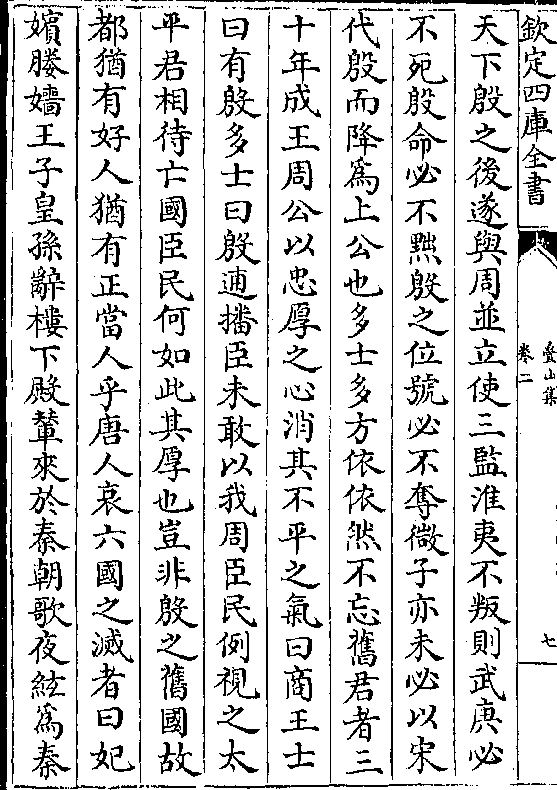 欽定四庫全書
疊山集
卷二
七
天下殷之後遂與周並立使三監淮夷不叛則武庚必
不死殷命必不黜殷之位號必不奪微子亦未必以宋
代殷而降爲上公也多士多方依依然不忘舊君者三
十年成王周公以忠厚之心消其不平之氣曰商王士
曰有殷多士曰殷逋播臣未敢以我周臣民例視之太
平君相待亡國臣民何如此其厚也豈非殷之舊國故
都猶有好人猶有正當人乎唐人哀六國之滅者曰妃
嬪媵嬙王子皇孫辭樓下殿輦來於秦朝歌夜絃爲秦